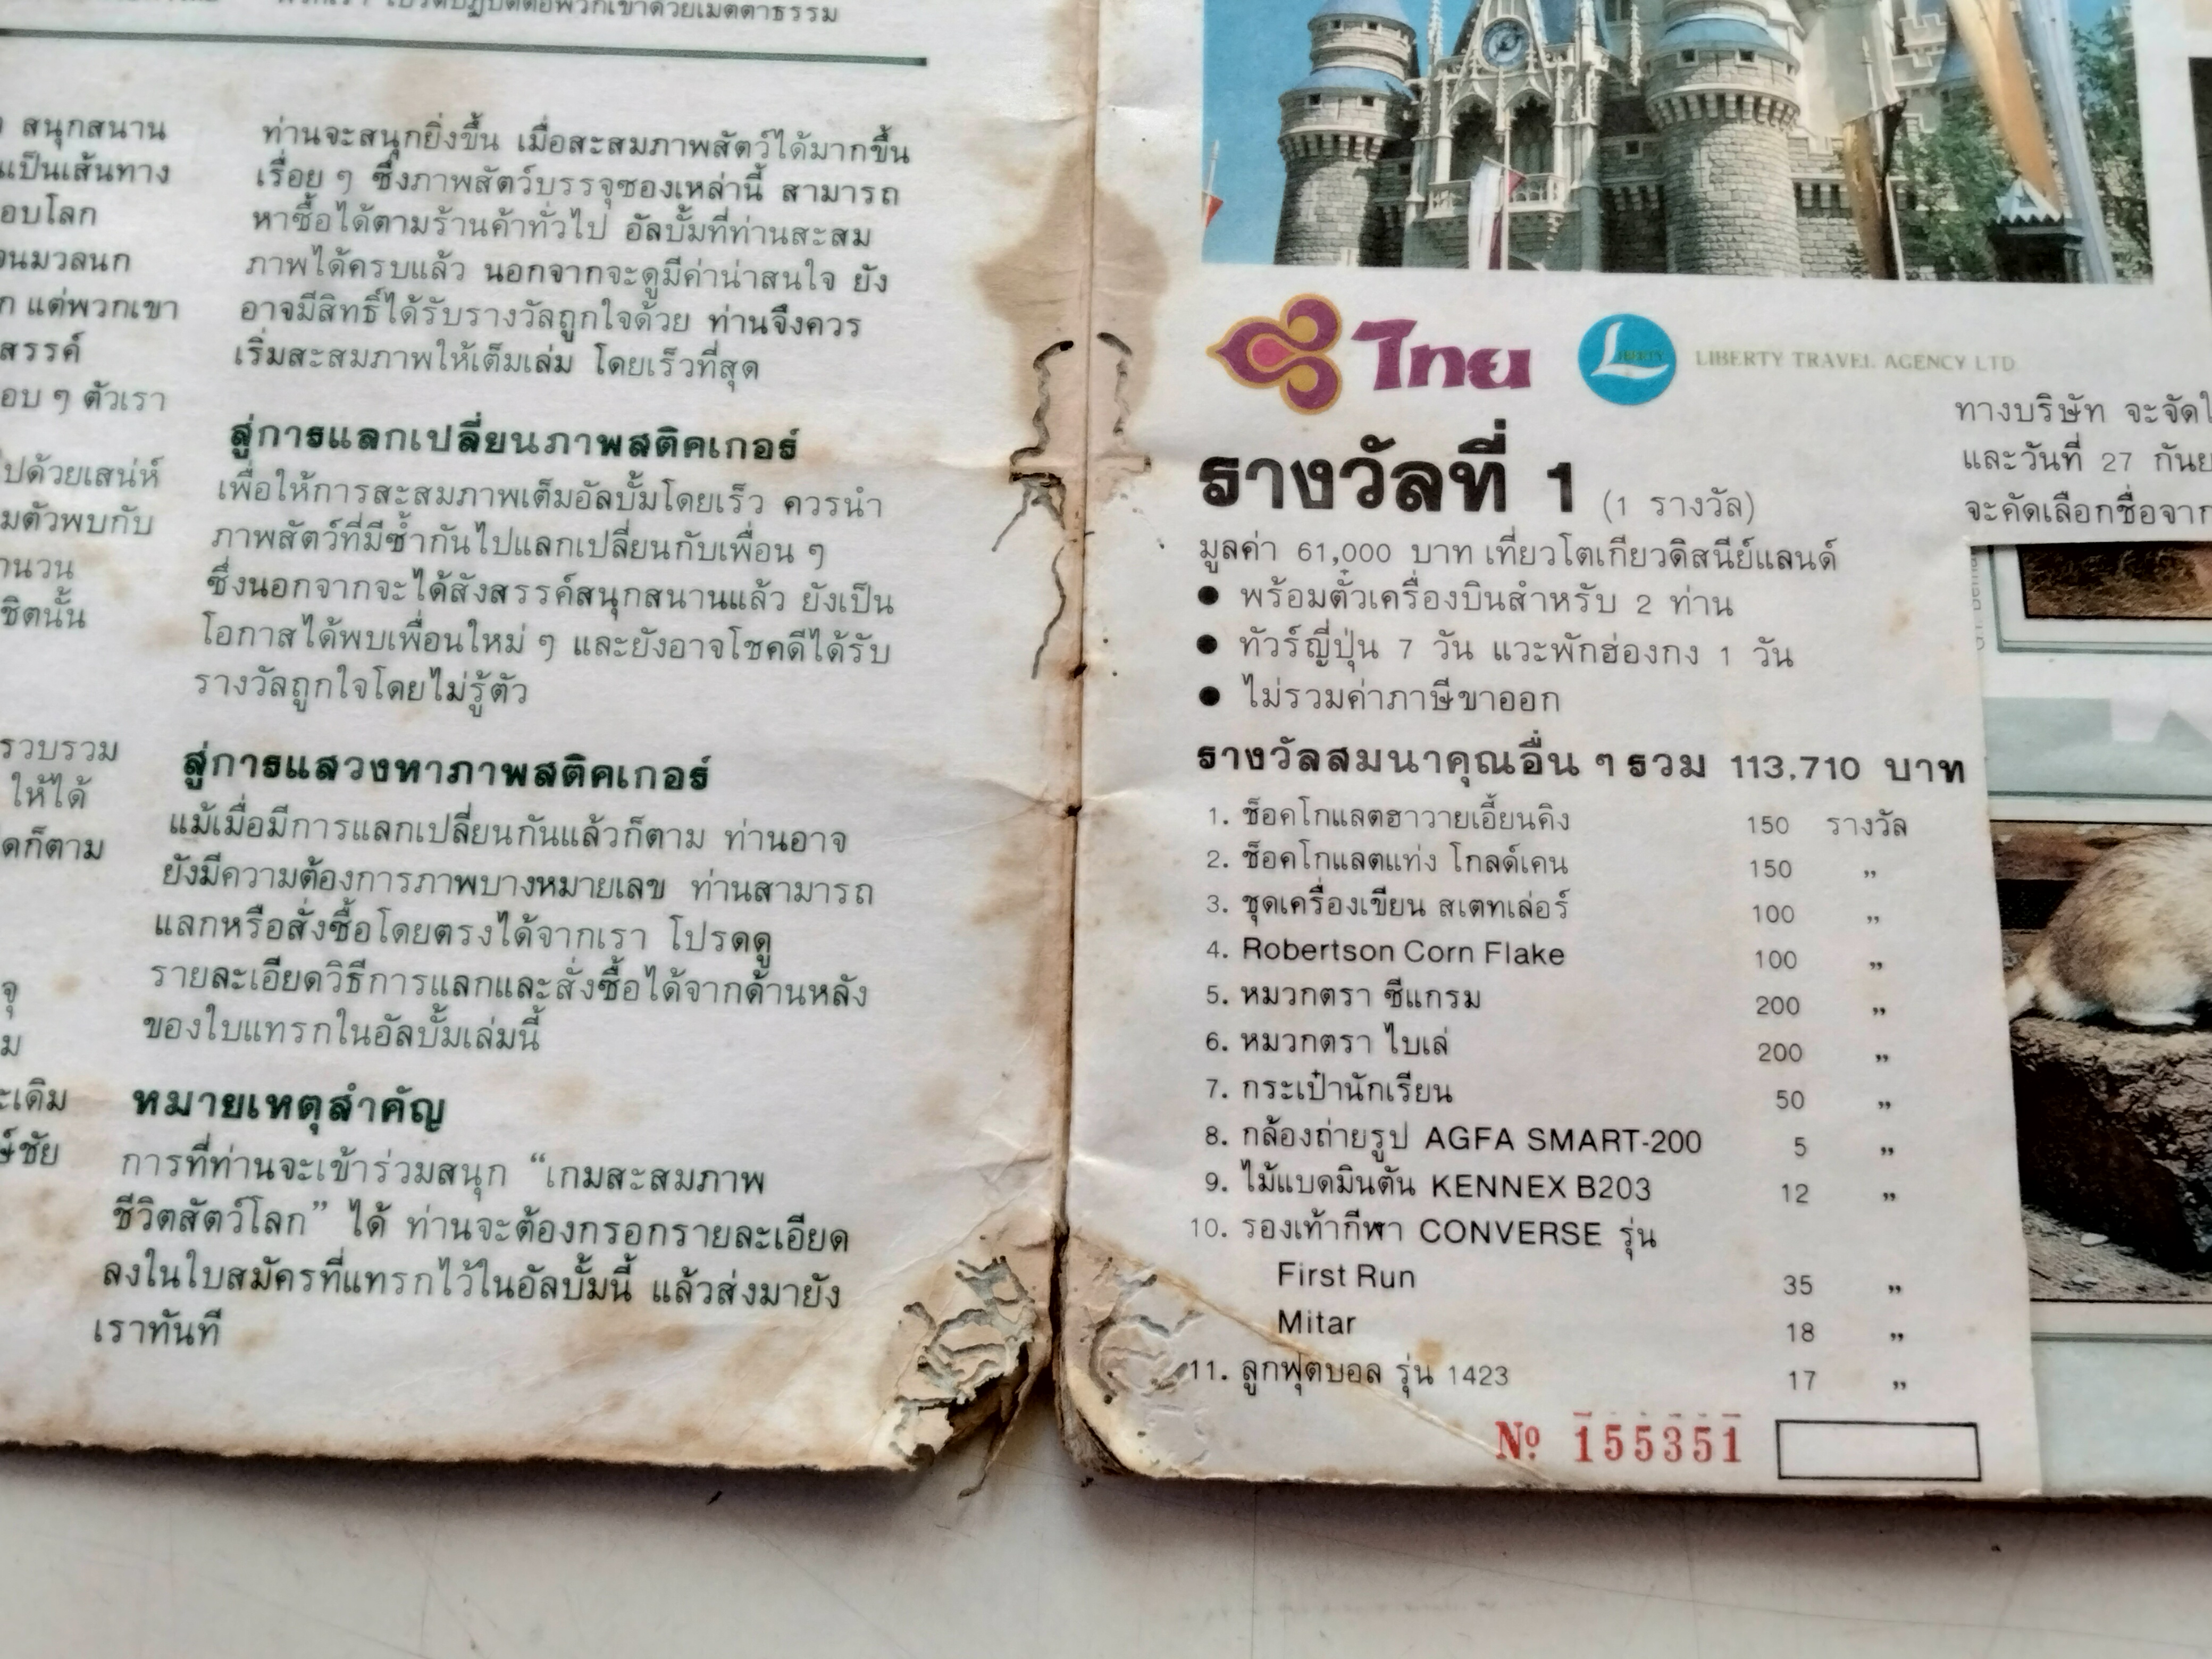 ปฏิบัติต่อพวกเขาด้วยเมตตาธรรม
สนุกสนาน
เป็นเส้นทาง
อบโลก
นมวลนก
ก แต่พวกเขา
สรรค์
อบ ๆ ตัวเรา
ปด้วยเสน่ห์
มตัวพบกับ
านวน
ชิตนั้น
รวบรวม
ให้ได้
ดก็ตาม
จุ
ม
ะเดิม
ษ์ชัย
ท่านจะสนุกยิ่งขึ้น เมื่อสะสมภาพสัตว์ได้มากขึ้น
เรื่อย ๆ ซึ่งภาพสัตว์บรรจุซองเหล่านี้ สามารถ
หาซื้อได้ตามร้านค้าทั่วไป อัลบั้มที่ท่านสะสม
ภาพได้ครบแล้ว นอกจากจะดูมีค่าน่าสนใจ ยัง
อาจมีสิทธิ์ได้รับรางวัลถูกใจด้วย ท่านจึงควร
เริ่มสะสมภาพให้เต็มเล่ม โดยเร็วที่สุด
สู่การแลกเปลี่ยนภาพสติคเกอร์
เพื่อให้การสะสมภาพเต็มอัลบั้มโดยเร็ว ควรนำ
ภาพสัตว์ที่มีซ้ำกันไปแลกเปลี่ยนกับเพื่อน ๆ
ซึ่งนอกจากจะได้สังสรรค์สนุกสนานแล้ว ยังเป็น
โอกาสได้พบเพื่อนใหม่ ๆ และยังอาจโชคดีได้รับ
รางวัลถูกใจโดยไม่รู้ตัว
สู่การแสวงหาภาพสติคเกอร์
แม้เมื่อมีการแลกเปลี่ยนกันแล้วก็ตาม ท่านอาจ
ยังมีความต้องการภาพบางหมายเลข ท่านสามารถ
แลกหรือสั่งซื้อโดยตรงได้จากเรา โปรดดู
รายละเอียดวิธีการแลกและสั่งซื้อได้จากด้านหลัง
ของใบแทรกในอัลบั้มเล่มนี้
หมายเหตุสำคัญ
การที่ท่านจะเข้าร่วมสนุก “เกมสะสมภาพ
ชีวิตสัตว์โลก” ได้ ท่านจะต้องกรอกรายละเอียด
ลงในใบสมัครที่แทรกไว้ในอัลบั้มนี้ แล้วส่งมายัง
เราทันที
ไทย LIBERTY LIBERTY TRAVEL AGENCY LTD
ทางบริษัท จะจัดใ
และวันที่ 27 กันย
จะคัดเลือกชื่อจาก
รางวัลที่ 1 (1 รางวัล)
มูลค่า 61,000 บาท เที่ยวโตเกียวดิสนีย์แลนด์
● พร้อมตั๋วเครื่องบินสำหรับ 2 ท่าน
● ทัวร์ญี่ปุ่น 7 วัน แวะพักฮ่องกง 1 วัน
● ไม่รวมค่าภาษีขาออก
รางวัลสมนาคุณอื่น ๆ รวม 113,710 บาท
1. ช็อคโกแลตฮาวายเอี้ยนคิง 150 รางวัล
2. ช็อคโกแลตแท่ง โกลด์เคน 150 ”
3. ชุดเครื่องเขียน สเตทเล่อร์ 100 ”
4. Robertson Corn Flake 100 ”
5. หมวกตรา ซีแกรม 200 ”
6. หมวกตรา ไบเล่ 200 ”
7. กระเป๋านักเรียน 50 ”
8. กล้องถ่ายรูป AGFA SMART-200 5 ”
9. ไม้แบดมินตัน KENNEX B203 12 ”
10. รองเท้ากีฬา CONVERSE รุ่น
First Run 35 ”
Mitar 18 ”
11. ลูกฟุตบอล รุ่น 1423 17 ”
№ 155351